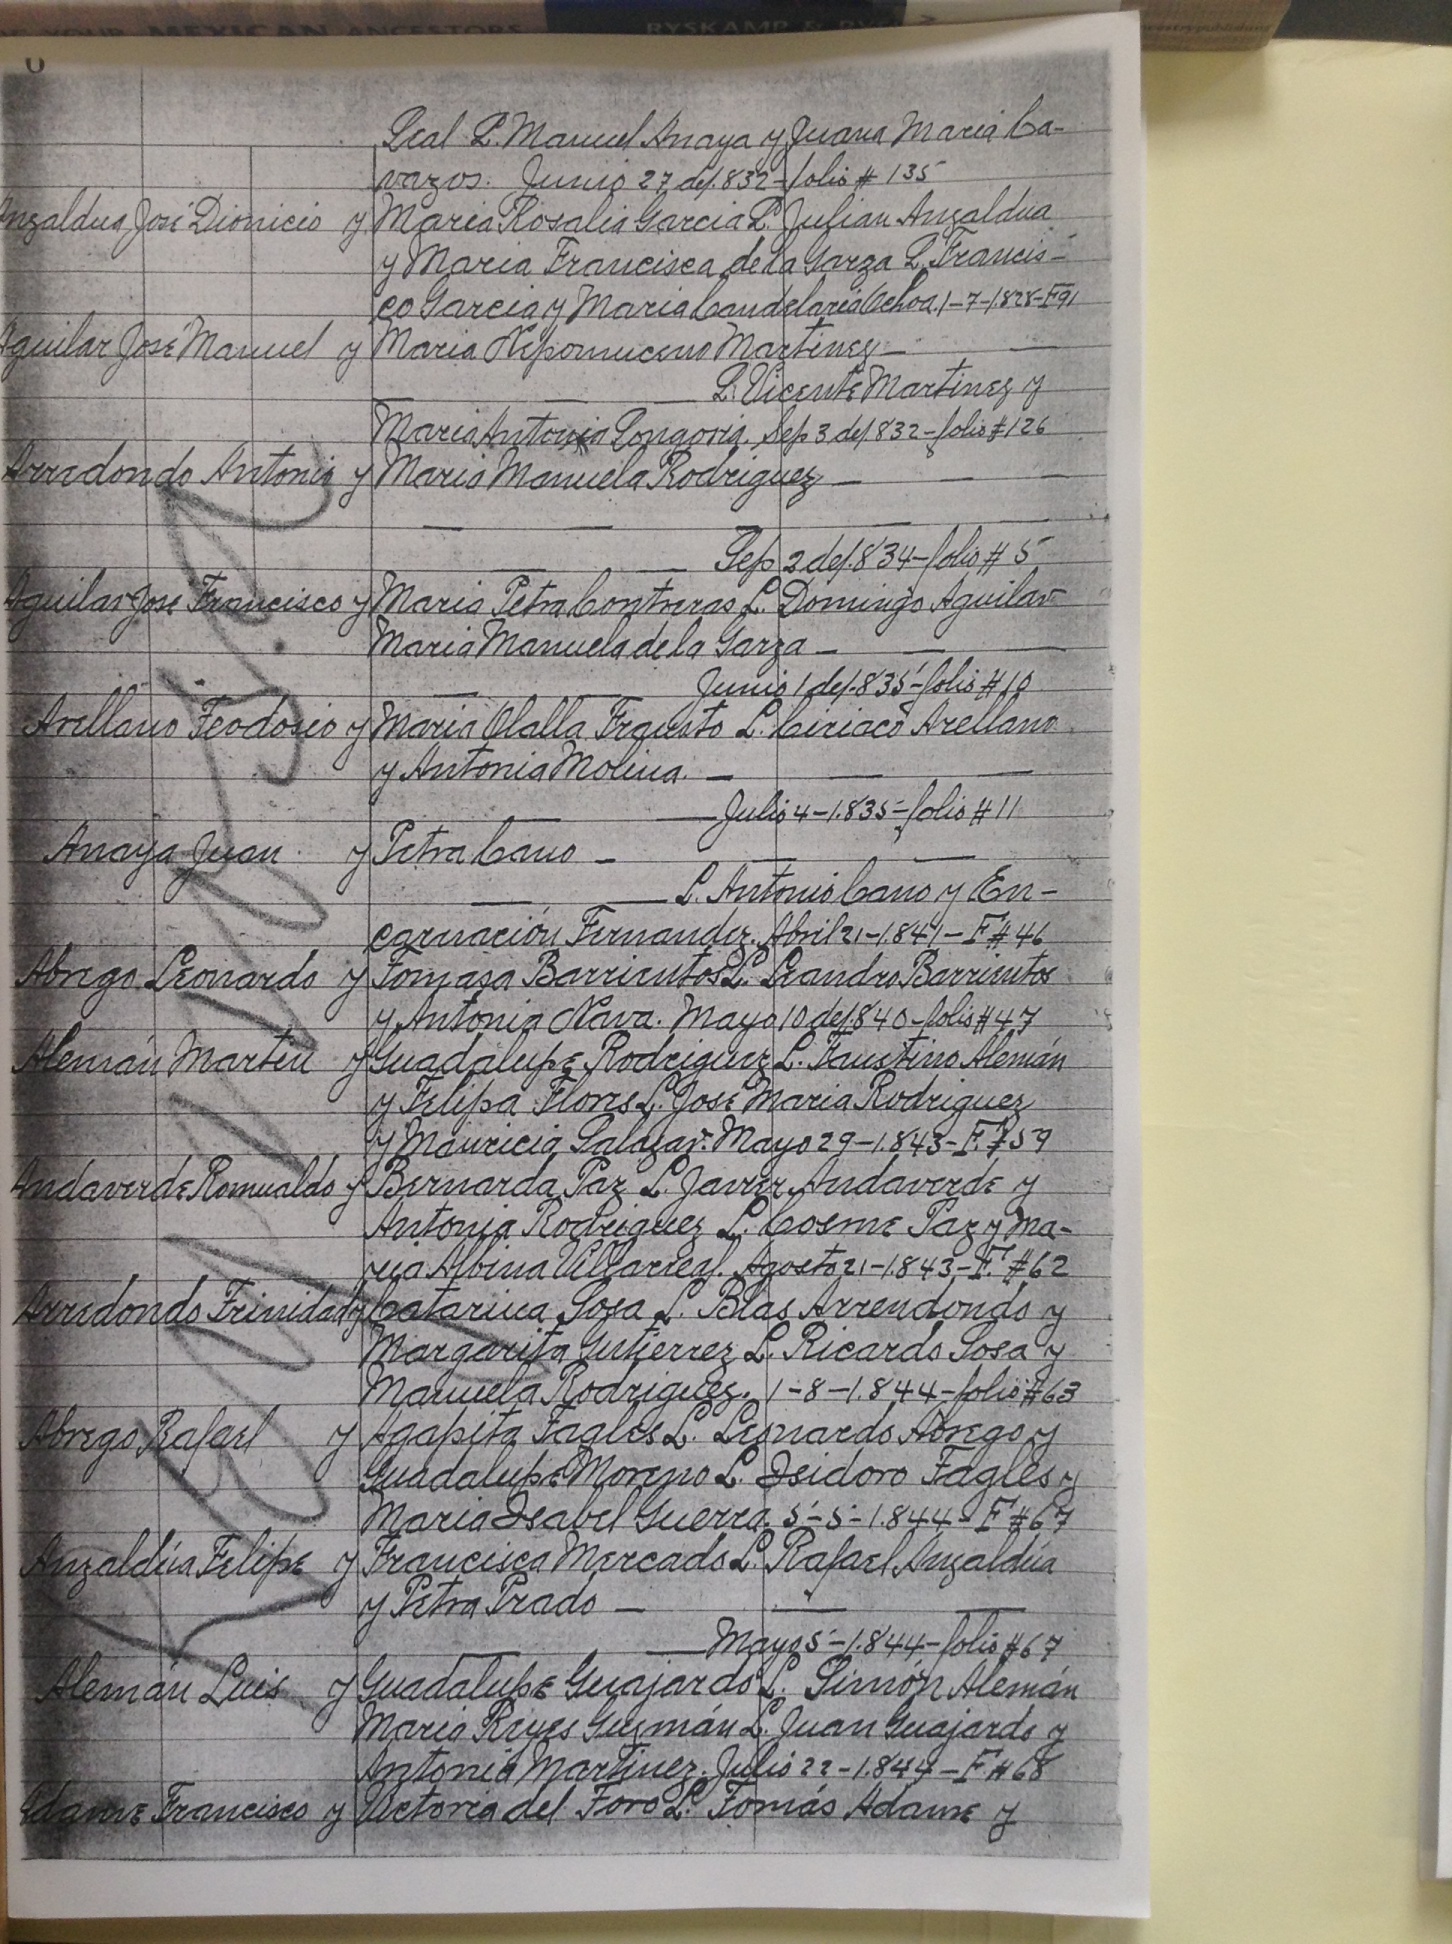 YOUR MEXICAN ANCESTORS RYSKAMP &
Leal L. Manuel Anaya y Juana Maria Ca-
vazos. Junio 27 de 1.832-folio # 135
Anzaldua José Dionicio y Maria Rosalia Garcia L. Julian Anzaldua
y Maria Francisca de la Garza L. Francis-
co Garcia y Maria Candelaria Ochoa. 1-7-1.828-F91
Aguilar José Manuel y Maria Nepomuceno Martinez - - -
- - - L. Vicente Martinez y
Maria Antonia Longoria. Sep 3 de 1.832-folio #126
Arredondo Antonio y Maria Manuela Rodriguez - - -
- - - -
- - Sep 2 de 1.834-folio # 5
Aguilar Jose Francisco y Maria Petra Contreras L. Domingo Aguilar
Maria Manuela de la Garza - - -
- - Junio 1 de 1.835-folio #10
Arellano Teodosio y Maria Olalla Frausto L. Ciriaco Arellano
y Antonia Molina. - - -
- Julio 4-1.835-folio #11
Anaya Juan y Petra Cano - - -
- - L. Antonio Cano y En-
carnación Fernandez. Abril 21-1.841-F #46
Abrego Leonardo y Tomasa Barrientos L. Leandro Barrientos
y Antonia Nava. Mayo 10 de 1.840-folio #47
Alemán Martin y Guadalupe Rodriguez L. Faustino Alemán
y Felipa Flores L. José Maria Rodriguez
y Mauricia Salazar. Mayo 29-1.843-F. #59
Andaverde Romualdo y Bernarda Paz L. Javier Andaverde y
Antonia Rodriguez L. Cosme Paz y Ma-
ria Albina Villarreal. Agosto 21-1.843-F. #62
Arredondo Trinidad y Catarina Sosa L. Blas Arrendondo y
Margarita Gutierrez L. Ricardo Sosa y
Manuela Rodriguez. 1-8-1.844-folio #63
Abrego Rafael y Agapita Fagles L. Leonardo Abrego y
Guadalupe Moreno L. Isidoro Fagles y
Maria Isabel Guerra. 5-5-1.844-F #67
Anzaldúa Felipe y Francisca Mercado L. Rafael Anzaldúa
y Petra Prado - - -
- - Mayo 5-1.844-folio #67
Alemán Luis y Guadalupe Guajardo L. Simón Alemán
Maria Reyes Guzmán L. Juan Guajardo y
Antonia Martinez. Julio 22-1.844-F #68
Adame Francisco y Victoria del Toro L. Tomás Adame y